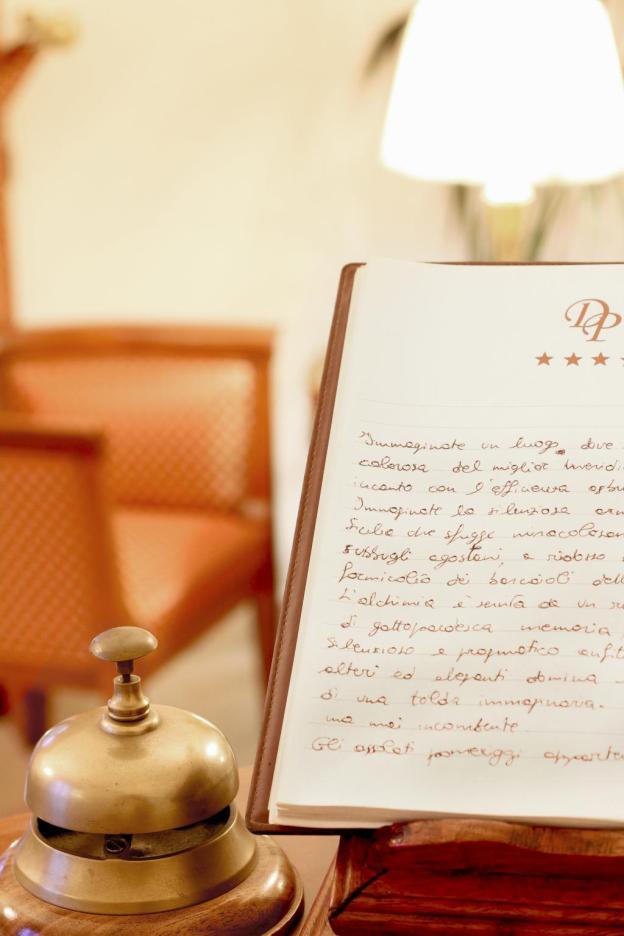 DP
Immaginate un luogo, dove
calorosa del miglior
incanto con l'efficienza
Immaginate la silenziosa
Sicilia che sfugge
subbugli agostani, a ridosso
formicolio dei barcaioli
L'alchimia è servita da un
di gattopardesca memoria
Silenzioso e pragmatico
alteri ed eleganti domina
di una tolda immaginaria.
ma mai incombente.
Gli assolati pomeriggi